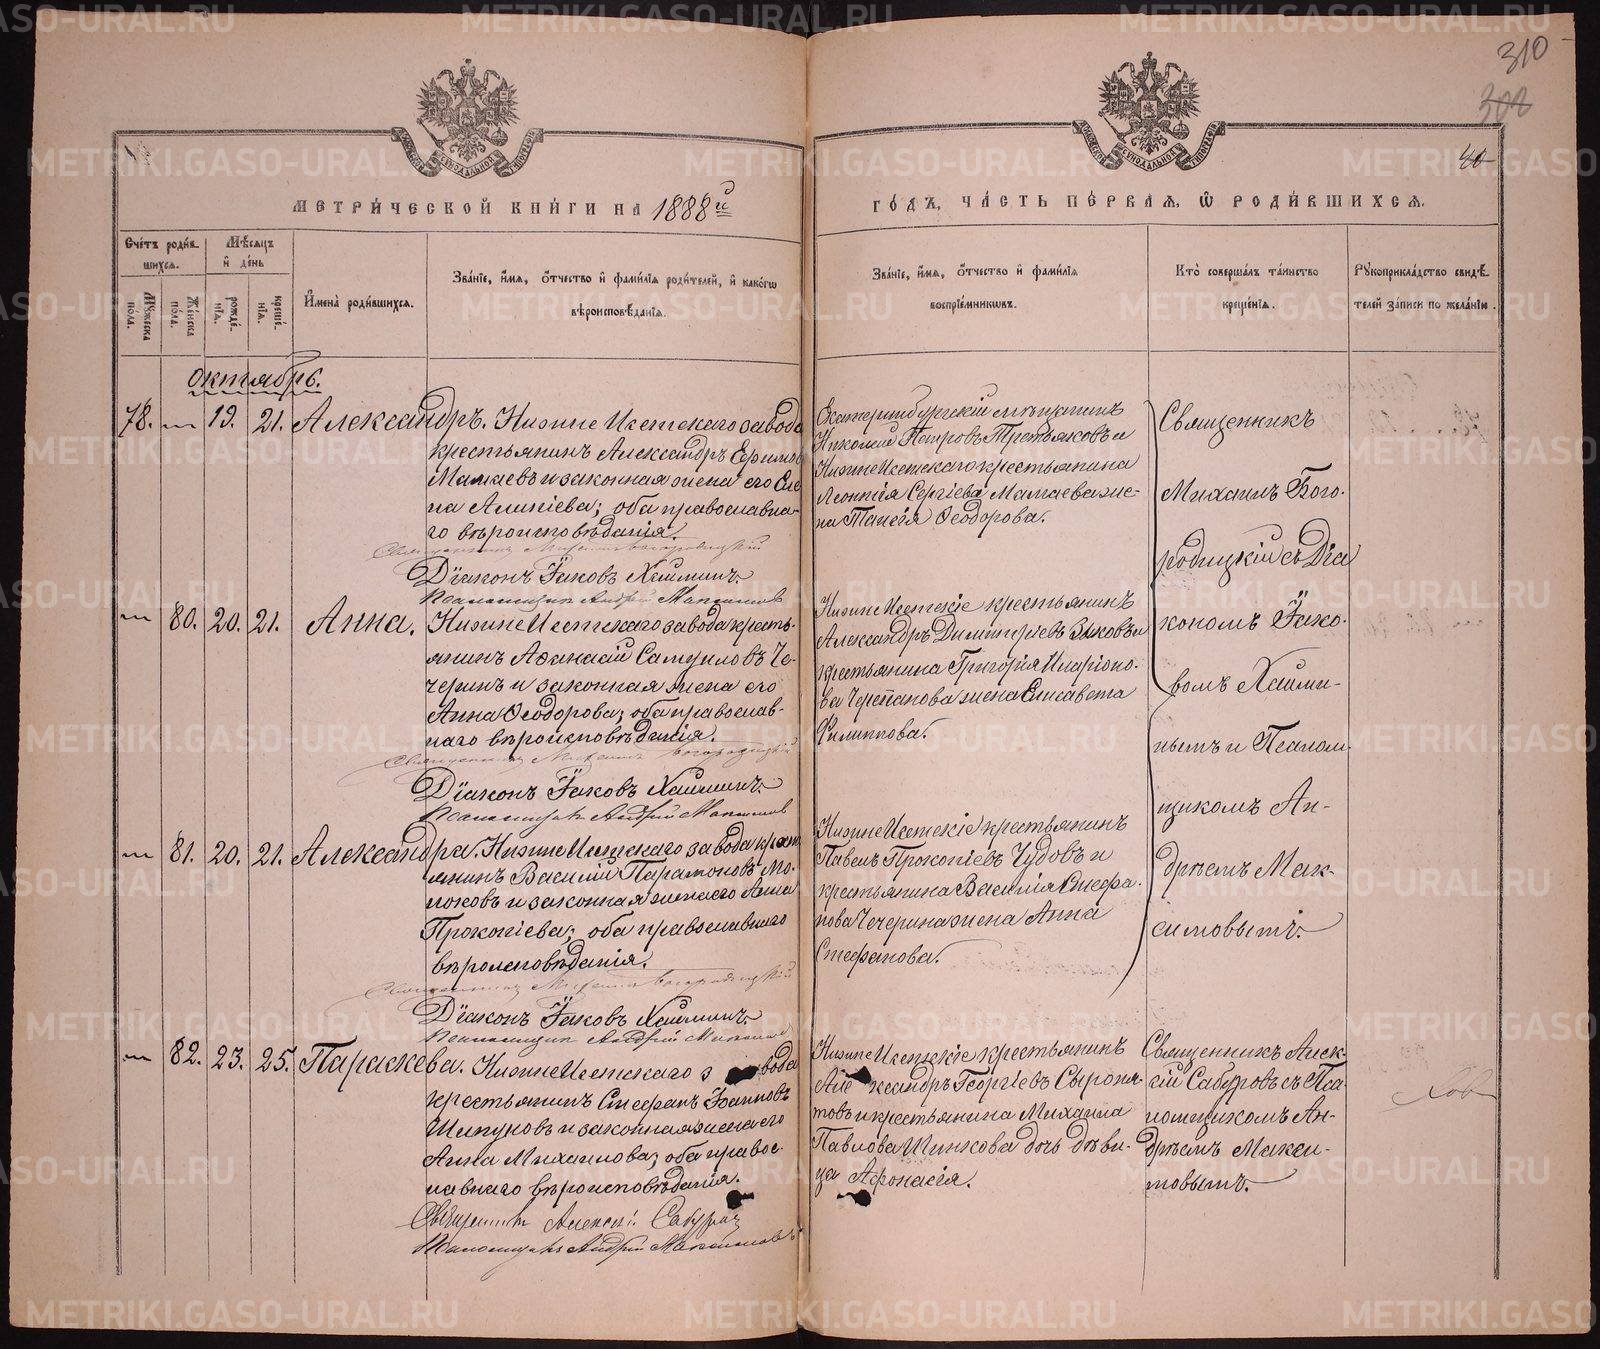 310
302
40
МЕТРИ́ЧЕСКОЙ КНИ́ГИ НА 1888й
ГО́ДЪ, ЧА́СТЬ ПЕ́РВАЯ, Ѡ РОДИ́ВШИХСЯ.
Сче́тъ роди́вшихся.
Му́жеска пола.
Же́нска пола.
Мѣ́сяцъ и́ де́нь
рожде́нїя.
креще́нїя.
И҆мена̀ роди́вшихся.
Зва́нїе, и҆́мя, ѻ҆́тчество и҆ фами́лїя роди́телей, и҆ како́гѡ
вѣроисповѣ́данїя.
Зва́нїе, и҆́мя, ѻ҆́тчество и҆ фами́лїя
воспрїе́мниковъ.
Кто̀ соверша́лъ та́инство
креще́нїя.
Рꙋкоприкла́дство свидѣ́
телей за́писи по жела́нїю.
Октябрь.
78. — 19. 21. Александръ. Нижне Исетскаго завода
крестьянинъ Александръ Ефимов
Мамаевъ и законная жена его Еле
на Алипіева; оба православна-
го вѣроисповѣданія.
Священникъ Михаилъ Богородицкій
Діаконъ Іаковъ Хаймин.
Псаломщикъ Андрей Максимов
Екатеринбургскій мѣщанинъ
Николай Петровъ Третьяковъ и
Нижне Исетскаго крестьянина
Леонтія Сергіева Мамаева же-
на Таисія Ѳеодорова.
— 80. 20. 21. Анна. Нижне Исетскаго завода кресть-
янинъ Аѳанасій Самуиловъ Че-
черинъ и законная жена его
Анна Ѳеодорова; оба православ-
наго вѣроисповѣданія.
Священникъ Михаилъ Богородицкій
Діаконъ Іаковъ Хайминъ.
Псаломщикъ Андрей Максимов
Нижне Исетскіе крестьянинъ
Александръ Димитріевъ Зыковъ и
крестьянина Григорія Иларіоно-
ва Черепанова жена Елисавета
Филиппова.
— 81. 20. 21. Александра. Нижне Исетскаго завода крест
янинъ Василій Парамоновъ Мо-
локовъ и законная жена его Анна
Прокопіева; оба православнаго
вѣроисповѣданія.
Священникъ Михаилъ Богородицкій
Діаконъ Іаковъ Хайминъ.
Псаломщикъ Андрей Максимов
Нижне Исетскіе крестьянинъ
Павелъ Прокопіевъ Чудовъ и
крестьянина Василія Стефа-
нова Чечерина жена Анна
Стефанова.
Священникъ
Михаилъ Бого-
родицкій съ Діа
кономъ Іако-
вомъ Хайми-
нымъ и Псалом
щикомъ Ан-
дреемъ Мак-
симовымъ.
— 82. 23. 25. Параскева. Нижне Исетскаго завода
крестьянинъ Стефанъ Іоанновъ
Шипуновъ и законная жена его
Анна Михаилова; оба правос-
лавнаго вѣроисповѣданія.
Священникъ Алексій Сабуровъ
Псаломщикъ Андрей Максимовъ
Нижне Исетскіе крестьянинъ
Александръ Георгіевъ Сыропя-
товъ и крестьянина Михаила
Павлова Шинкова дочь дѣви-
ца Афонасія.
Священникъ Алек-
сій Сабуровъ съ Пса
ломщикомъ Ан-
дреемъ Макси-
мовымъ.